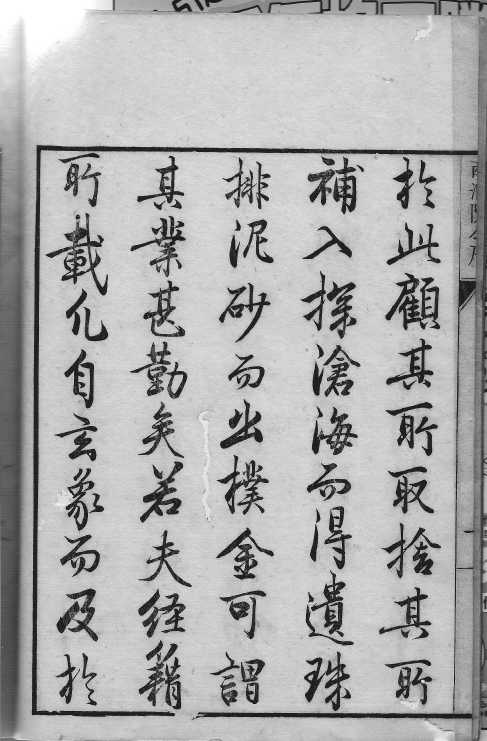 於此顧其所取捨其所
補入探滄海而得遺珠
排泥砂而出樸金可謂
其業甚勤矣若夫经籍
所載凡自玄象而及於